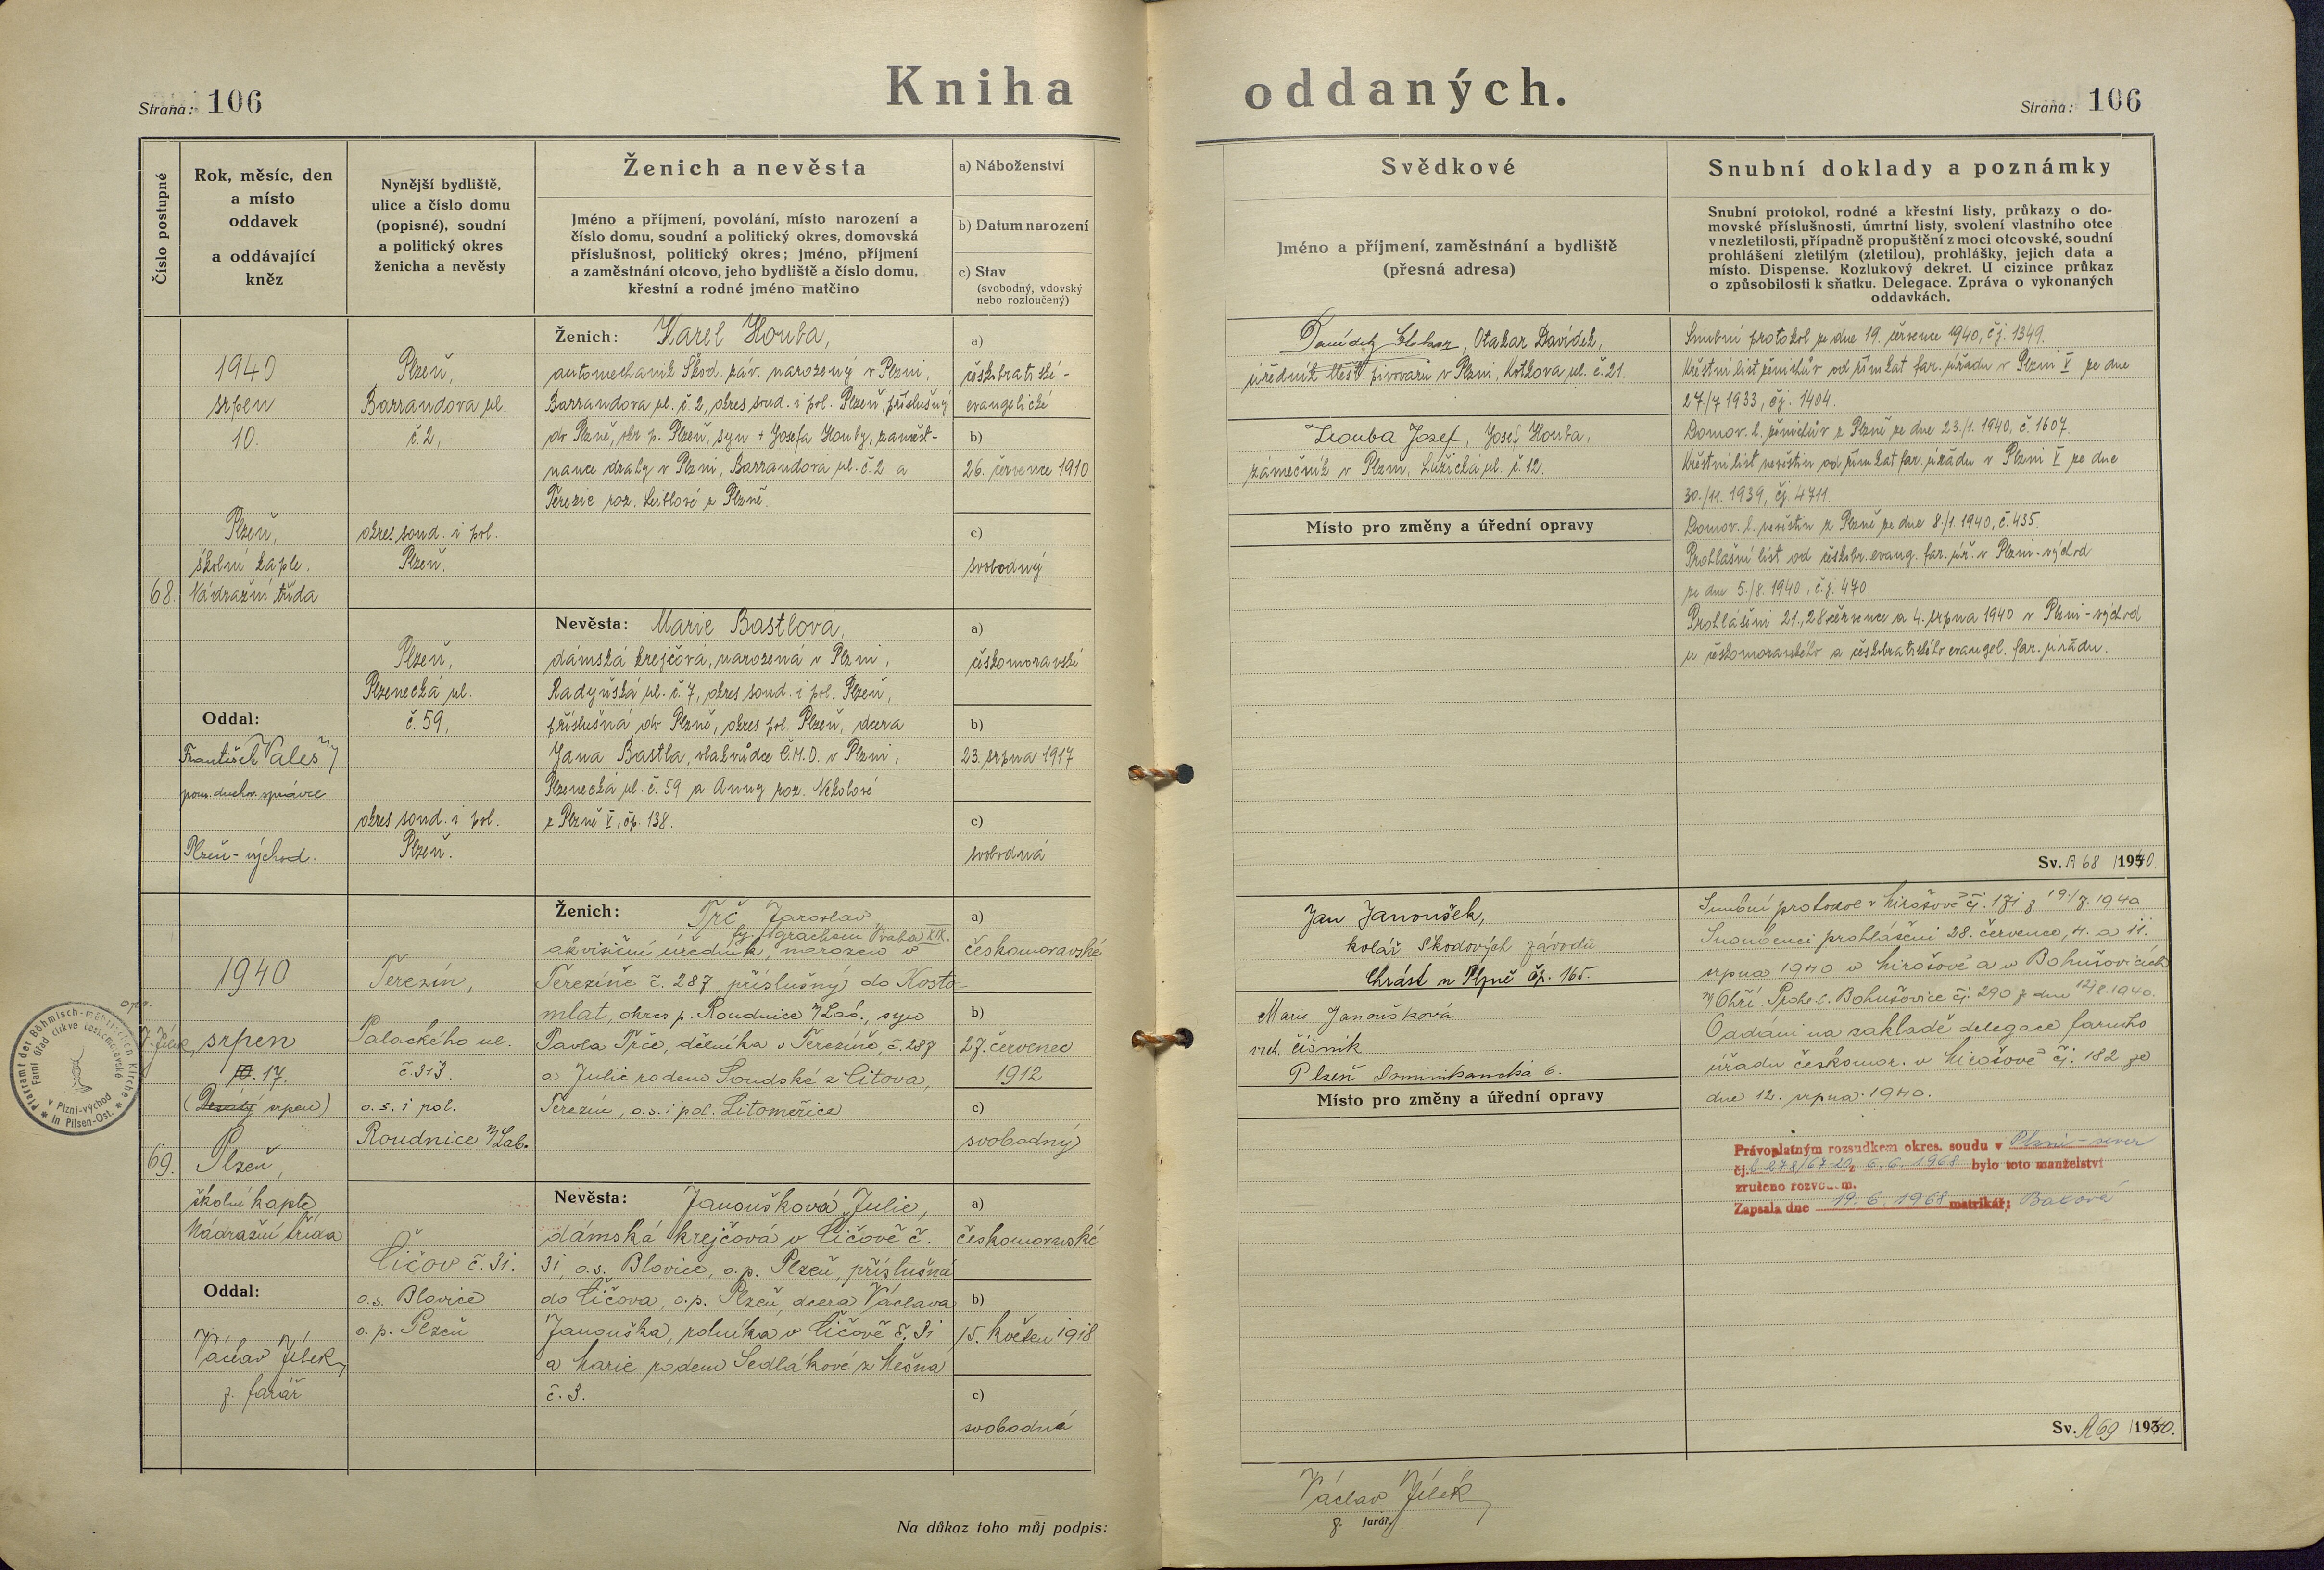 Strana: 106
Kniha oddaných.
Strana: 106
Číslo postupné
Rok, měsíc, den
a místo
oddavek
a oddávající
kněz
Nynější bydliště,
ulice a číslo domu
(popisné), soudní
a politický okres
ženicha a nevěsty
Ženich a nevěsta
Jméno a příjmení, povolání, místo narození a
číslo domu, soudní a politický okres, domovská
příslušnost, politický okres; jméno, příjmení
a zaměstnání otcovo, jeho bydliště a číslo domu,
křestní a rodné jméno matčino
a) Náboženství
b) Datum narození
c) Stav
(svobodný, vdovský
nebo rozloučený)
Svědkové
Jméno a příjmení, zaměstnání a bydliště
(přesná adresa)
Snubní doklady a poznámky
Snubní protokol, rodné a křestní listy, průkazy o do-
movské příslušnosti, úmrtní listy, svolení vlastního otce
v nezletilosti, případně propuštění z moci otcovské, soudní
prohlášení zletilým (zletilou), prohlášky, jejich data a
místo. Dispense. Rozlukový dekret. U cizince průkaz
o způsobilosti k sňatku. Delegace. Zpráva o vykonaných
oddavkách.
68.
1940
srpen
10.
Plzeň,
školní kaple.
Nádražní třída
Oddal:
František Valeš
pom. duchov. správce
Plzeň - východ.
Plzeň,
Barrandova ul.
č. 2,
okres soud. i pol.
Plzeň.
Ženich: Karel Houba,
automechanik Škod. záv. narozený v Plzni,
Barrandova ul. č. 2, okres soud. i pol. Plzeň, příslušný
do Plzně, okr. p. Plzeň, syn + Josefa Houby, zaměst-
nance dráhy v Plzni, Barrandova ul. č. 2 a
Terezie roz. Leitlové z Plzně.
a)
českobratrské-
evangelické
b)
26. července 1910
c)
svobodný
Plzeň,
Plzenecká ul.
č. 59,
okres soud. i pol.
Plzeň.
Nevěsta: Marie Bastlová,
dámská krejčová, narozená v Plzni,
Radyňská ul. č. 7, okres soud. i pol. Plzeň,
příslušná do Plzně, okres pol. Plzeň, dcera
Jana Bastla, vlakvůdce Č.M.D. v Plzni,
Plzenecká ul. č. 59 a Anny roz. Nikolové
z Plzně V, čp. 138.
a)
českomoravské
b)
23. srpna 1917
c)
svobodná
Otakar Davídek,
úředník Měšť. pivovaru v Plzni, Kotkova ul. č. 21.
Houba Josef, Josef Houba,
zámečník v Plzni, Lužická ul. č. 12.
Místo pro změny a úřední opravy
Snubní protokol ze dne 19. července 1940, čj. 1349.
Křestní list ženichův od řím kat far. úřadu v Plzni V ze dne
27/7 1933, čj. 1404.
Domov. l. ženichův z Plzně ze dne 23./1. 1940, č. 1607.
Křestní list nevěstin od řím kat far. úřadu v Plzni V ze dne
30./11. 1939, čj. 4711.
Domov. l. nevěstin z Plzně ze dne 8./1. 1940, č. 435.
Prohlašní list od českobr. evang. far. úř. v Plzni - východ
ze dne 5./8. 1940, č. j. 470.
Prohlášeni 21., 28 července a 4. srpna 1940 v Plzni - východ
u českomoravského a českobratrského evangel. far. úřadu.
Sv. A 68 /1940.
69.
1940
srpen
10. 17.
(Desátý srpen)
Plzeň,
školní kaple
Nádražní třída
Oddal:
Václav Jílek,
z. farář
Pfarramt der Böhmisch-mährischen Kirche
in Pilsen-Ost.
Farní úřad církve českomoravské
v Plzni-východ
Terezín,
Palackého ul.
č. 313.
o. s. i pol.
Roudnice n/Lab.
Ženich: Trč Jaroslav,
akvisiční úředník, narozen v
Terezíně č. 287, příslušný do Kosto-
mlat, okres p. Roudnice n/Lab., syn
Pavla Trče, dělníka v Terezíně, č. 287
a Julie rodem Soudské z Citova,
Terezín, o. s. i pol. Litoměřice
a)
českomoravské
b)
27. červenec
1912
c)
svobodný
Čičov č. 31.
o. s. Blovice
o. p. Plzeň
Nevěsta: Janoušková Julie,
dámská krejčová v Čičově č.
31, o. s. Blovice, o. p. Plzeň, příslušná
do Čičova, o. p. Plzeň, dcera Václava
Janouška, rolníka v Čičově č. 31
a Marie rodem Sedlákové z Mešna
č. 3.
a)
českomoravské
b)
15. květen 1918
c)
svobodná
Jan Janoušek,
kolář Škodových závodů
Chrást u Plzně čp. 165.
Marie Janoušková
vrch. číšník
Plzeň Dominikanská 6.
Místo pro změny a úřední opravy
Snubní protokol v Mirošově čj. 171 z 19./7. 1940
Snoubenci prohlášeni 28. července, 4. a 11.
srpna 1940 v Mirošově a v Bohušovicích
n/Ohří. Prohl. l. Bohušovice čj. 290 z dne 12/8. 1940.
Oddáni na základě delegace farního
úřadu českomor. v Mirošově čj. 182 ze
dne 12. srpna 1940.
Právoplatným rozsudkem okres. soudu v Plzni - sever
6. 6. 1968 bylo toto manželství
zrušeno rozvodem.
Zapsala dne 19. 6. 1968 matrikář:
Sv. A 69 /1940.
Na důkaz toho můj podpis:
Václav Jílek,
z. farář.